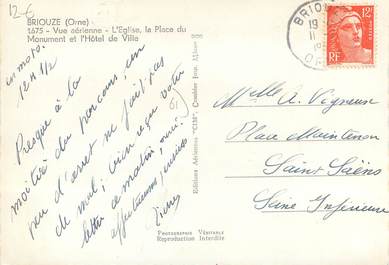 12 €
BRIOUZE (Orne)
1675 - Vue aérienne - L'Eglise, la Place du
Monument et l'Hôtel de Ville
en moto.
12 h 1/2
Presque à la
moitié du parcours, un
peu d'arrêt ne fait pas
de mal, bien reçu votre
lettre ce matin, merci
affectueuses
Pierre
61
PHOTOGRAPHIE VÉRITABLE
Reproduction Interdite
Editions Aériennes "CIM" Combier Imp. Mâcon
BRIOUZE
19
12F
POSTES
RF
Melle A. Vigneux
Place Maintenon
Saint Saëns
Seine Inférieure